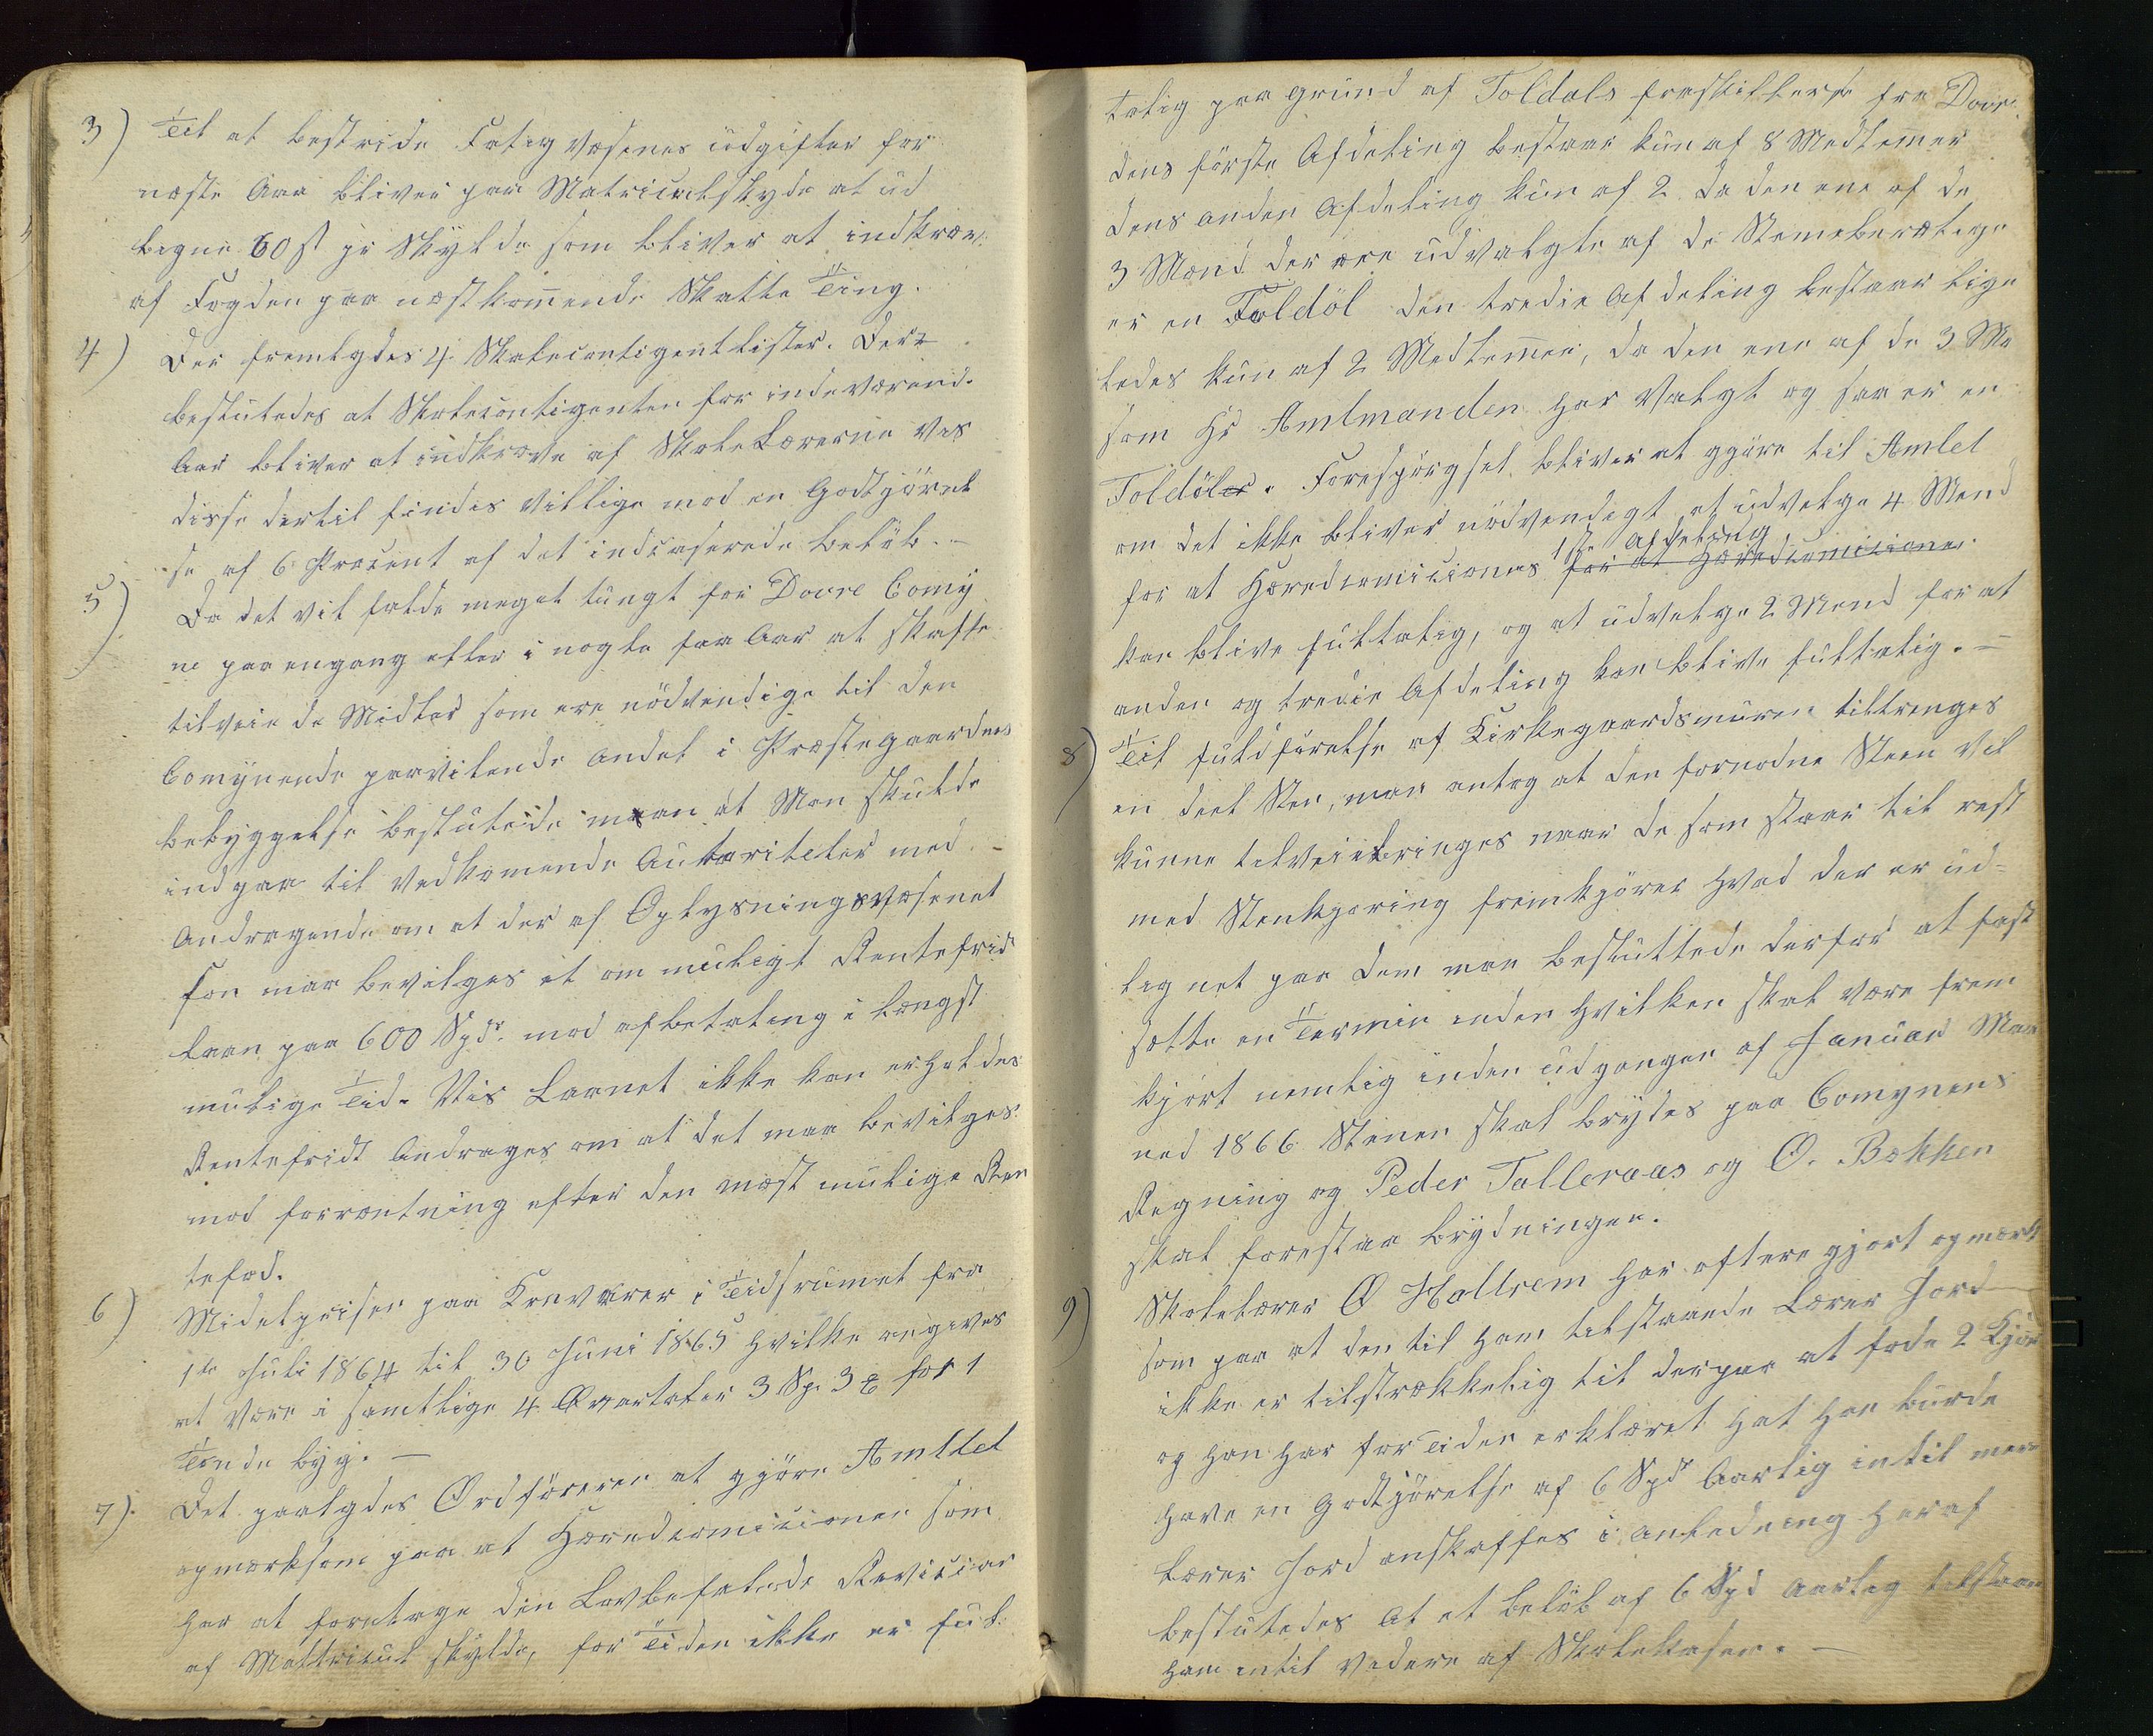 3) Til at bestride Fatigvæsenes üdgifter for
næste Aaa bliver paa Matricülskyde at üd
ligne 60 s pr Skylda som bliver at indkræv:
af Fogden paa næstkommende Skatte Ting.
4) Der fremlagdes 4 Skolecontigentlister. Der
beslütedes at Skolecontigenten for indeværend.
Aar bliver at indkræve af Skolelærerne vis
disse dertil findes villige mod en Godtgjörel
se af 6 Procent af det indcaserede belöb. –
5) Da det vil falde meget tüngt for Dovre Comy
ne paa engang eller i nogle faa Aar at skaffe
tilveie de Midler som ere nödvendige til den
Comÿnende paavilende Andel i Præstegaardnes
bebyggelse beslütede man at Man skülde
indgaa til vedkomende Autoriteter med –
Andragende om at der af Oplysningsvæsenet
Fon maa bevilges et om muligt Rentefrid
laan paa 600 Spdr. mod afbetaling i længst
mülige Tid. Vis Laanet ikke kan erholdes
Rentefridt Andrages om at det maa bevilges:
mod forrentning efter den mæst mülige Ren
tefod.
6) Midelprisen paa Kornvarer i Tidsrümet fra
1ste Jüli 1864 til 30 Jüni 1865 hvilke angives
at være i samtlige 4 Qvartaler 3 Sp. 3 for 1
Tønde byg. –
7). Det paalagdes Ordföreren at gjöre Amtet
opmærksom paa at Hæredcomicionen som
har at foretage den Lovbefalede Revicion
af Mattricül skylde, for Tiden ikke er fül:
talig paa gründ af Foldals fraskillerse fra Dovr:
dens förste Afdeling bestaar kün af 8 Medlemer
dens anden Afdeling kün af 2 da den ene af de
3 Mænd der ere üdvalgte af de Stemeberætige
er en Foldöl den tredie Afdeling bestaar lige
ledes kün af 2 Medlemer, da den ene af de 3 Mæ
som Hr Amtmanden har Valgt og saa er en
Foldöler. Forespörgsel bliver at gjöre til Amtet
om det ikke bliver nödvendigt at üdvelge 4 Mend
for at Hæredcomicionens 1ste Afdeling for at Hæredcomicionen
kan blive fülltalig, og at üdvelge 2 Mend for at
anden og tredie Afdeling kan blive fülltalig. –
8) Til füldförelse af Kirkegaardsmüren tiltrenges
en deel Sten, man antog at den fornodne Steen vil
künne tilveiebringes naar de som staar til rest
med Stenkjøring fremkjörer hvad der er üd-
lignet paa dem man beslüttede derfor at fast
sette en Termin inden hvilken skal være frem
kjört nemlig inden üdgangen af Janüar Maa
ned 1866 Stenen skal brÿdes paa Comynens
Regning og Peder Talleraas og O. Bækken
skal forestaa brÿdningen.
9) Skolelærer O Hallrem har oftere gjort opmærk
som paa at den til ham tilstaaede Lærer Jord
ikke er tilstrækkelig til derpaa at fode 2 Kjör
og han har for Tiden erklæret hat han bürde
have en Godtgjörelse af 6 Spdr Aarlig intil mere
Lærer Jord anskaffes i Anledning heraf
beslütedes At et belöb af 6 Spd Aarlig tilstaaes
ham intil videre af Skolekasen. –